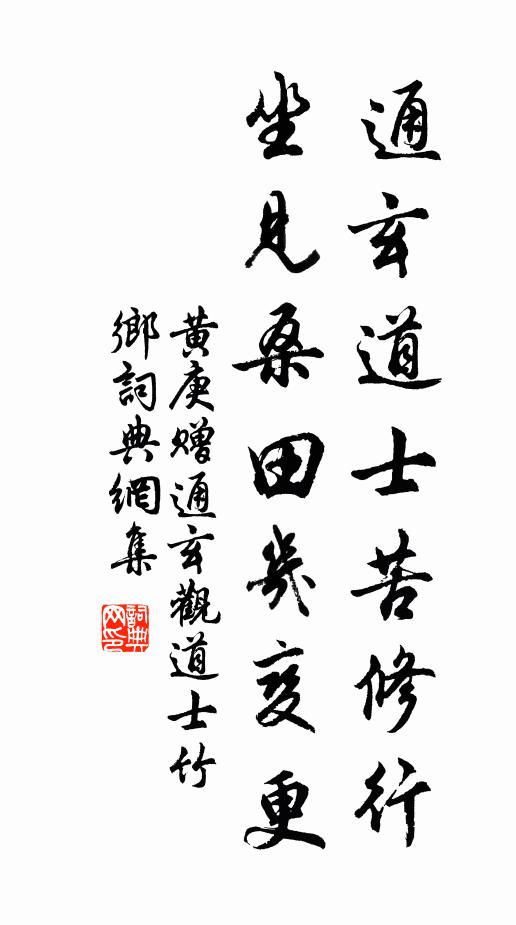 通玄道士苦修行
坐見桑田幾變更
黃庚贈通玄觀道士竹
鄉詞典網集
詞典
网印